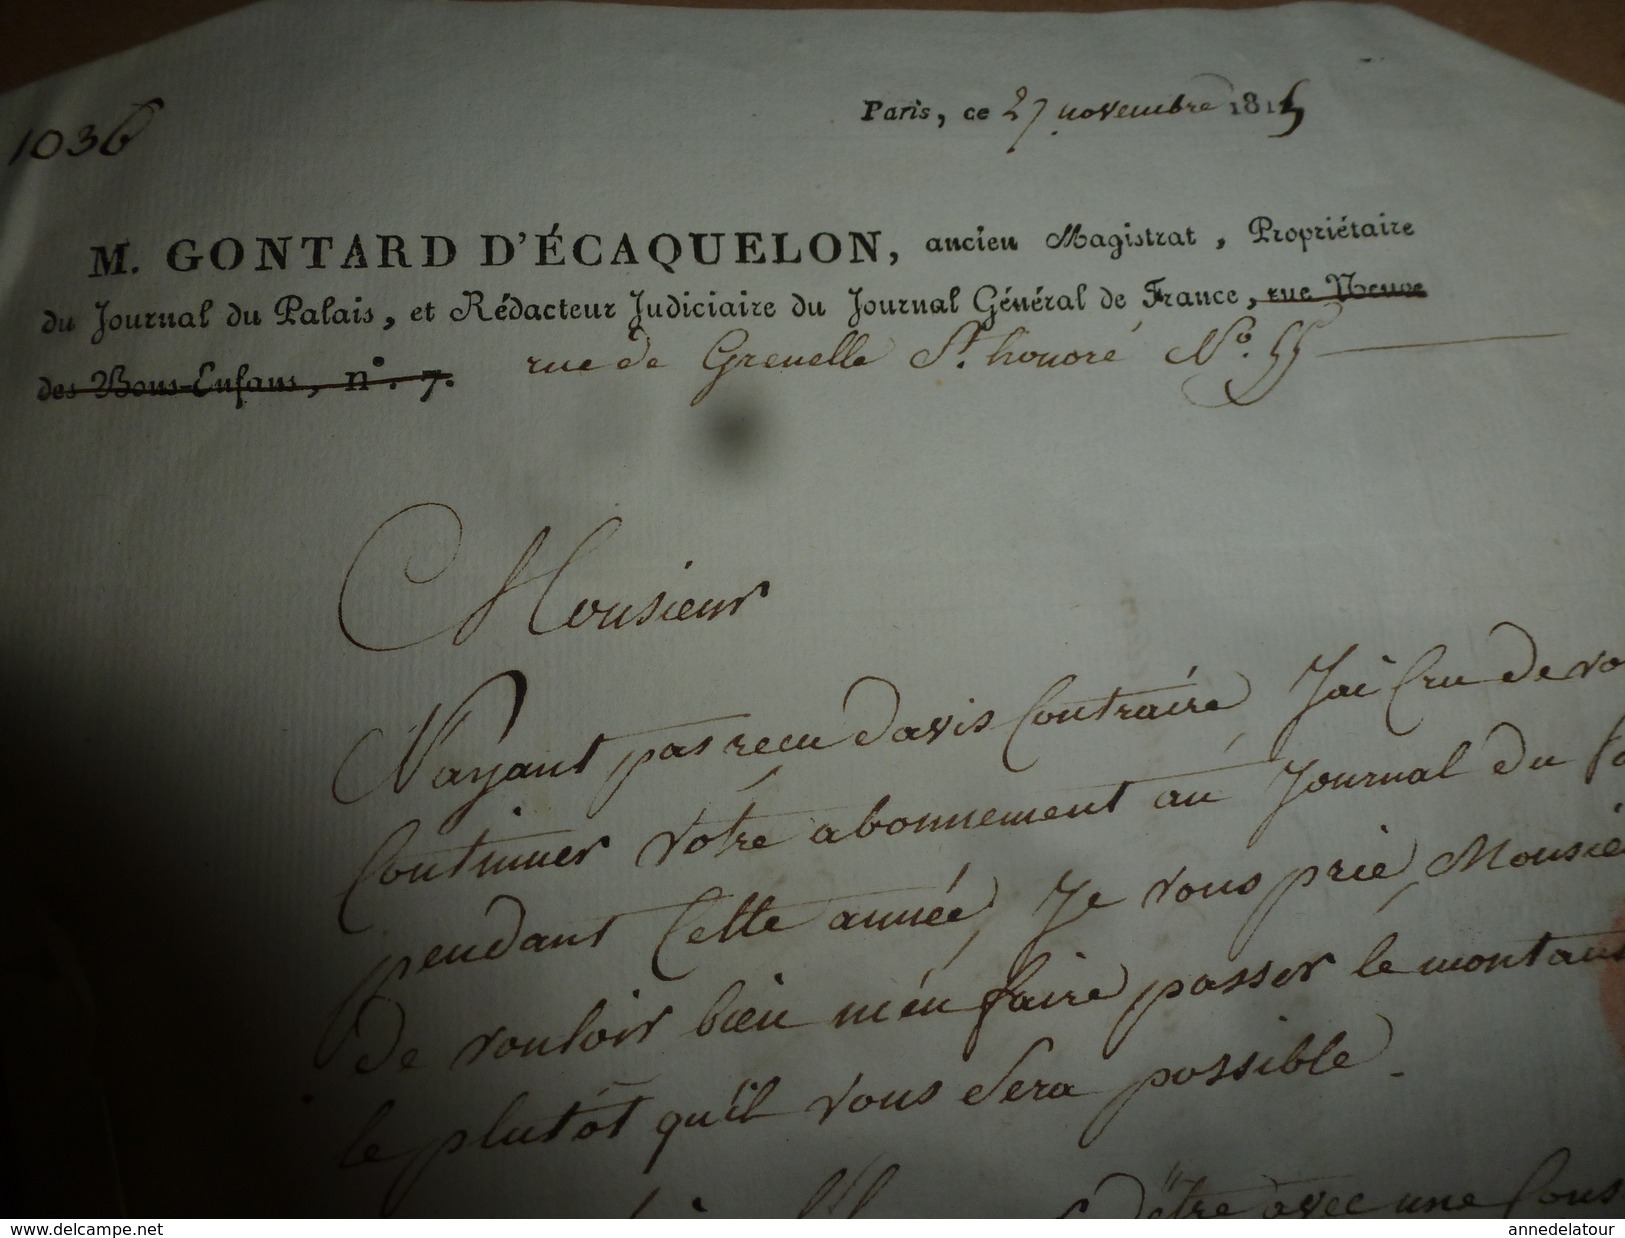 Paris, ce 27 novembre 1815
1036
M. GONTARD D'ÉCAQUELON, ancien Magistrat, Propriétaire
du Journal du Palais, et Rédacteur Judiciaire du Journal Général de France, rue Neuve
des Bons-Enfans, n°. 7. rue de Grenelle St. honoré No. 55
Monsieur
N'ayant pas recu davis Contraire J'ai Cru de vo
Continuer votre abonnement au Journal du
pendant Cette année, Je vous prie, Monsie
de vouloir bien m'en faire passer le montant
le plutôt qu'il vous sera possible.
d'être avec une Cons
www.delcampe.net
annedelatour